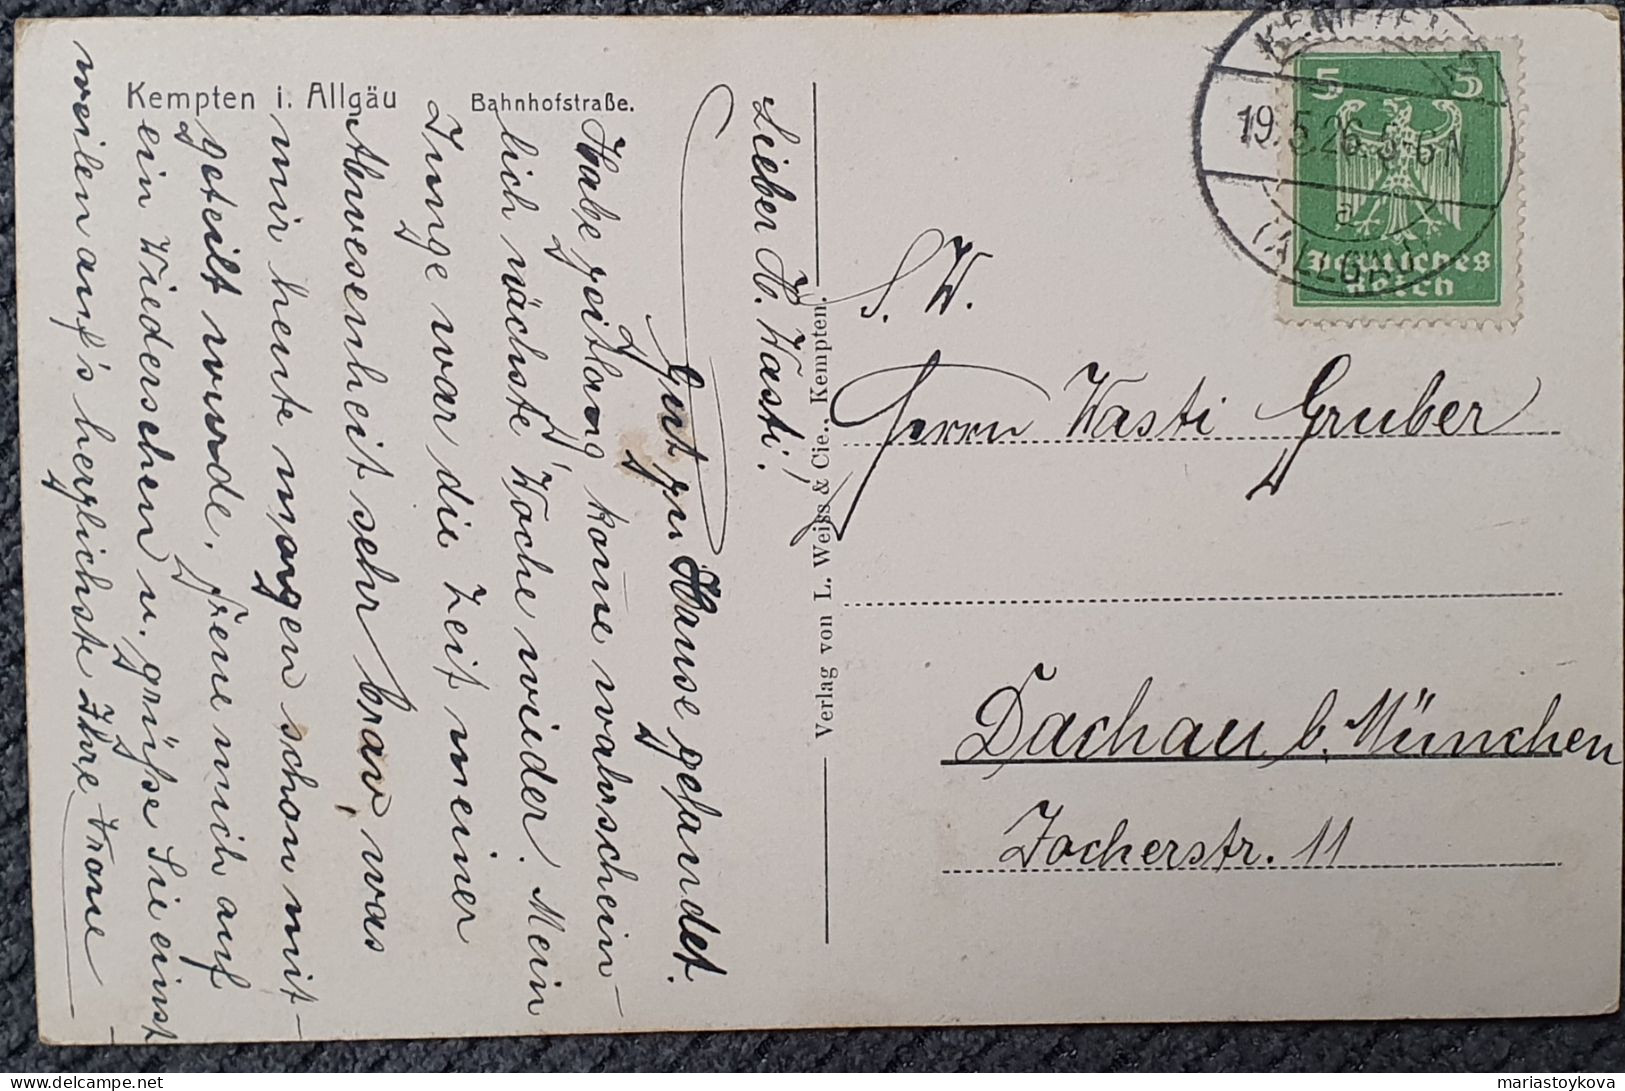 Kempten i. Allgäu
Bahnhofstraße.
Lieber H. Wasti!
Gut zu Hause gelandet.
Habe zeitlang kome wahrschein-
lich nächste Woche wieder. Mein
Junge war die Zeit meiner
Abwesenheit sehr brav, was
mir heute morgen schon mit-
geteilt wurde. Freue mich auf
ein Wiedersehen u. grüße Sie einst
weilen auf's herzlichste Ihre
Verlag von L. Weiss & Cie., Kempten.
KEMPTEN
19.5.26.5-6N
a
(ALLGÄU)
5 5
Deutsches
Reich
S. W.
Herrn Wasti Gruber
Dachau b. München
Jocherstr. 11
mariastoykova
delcampe.net